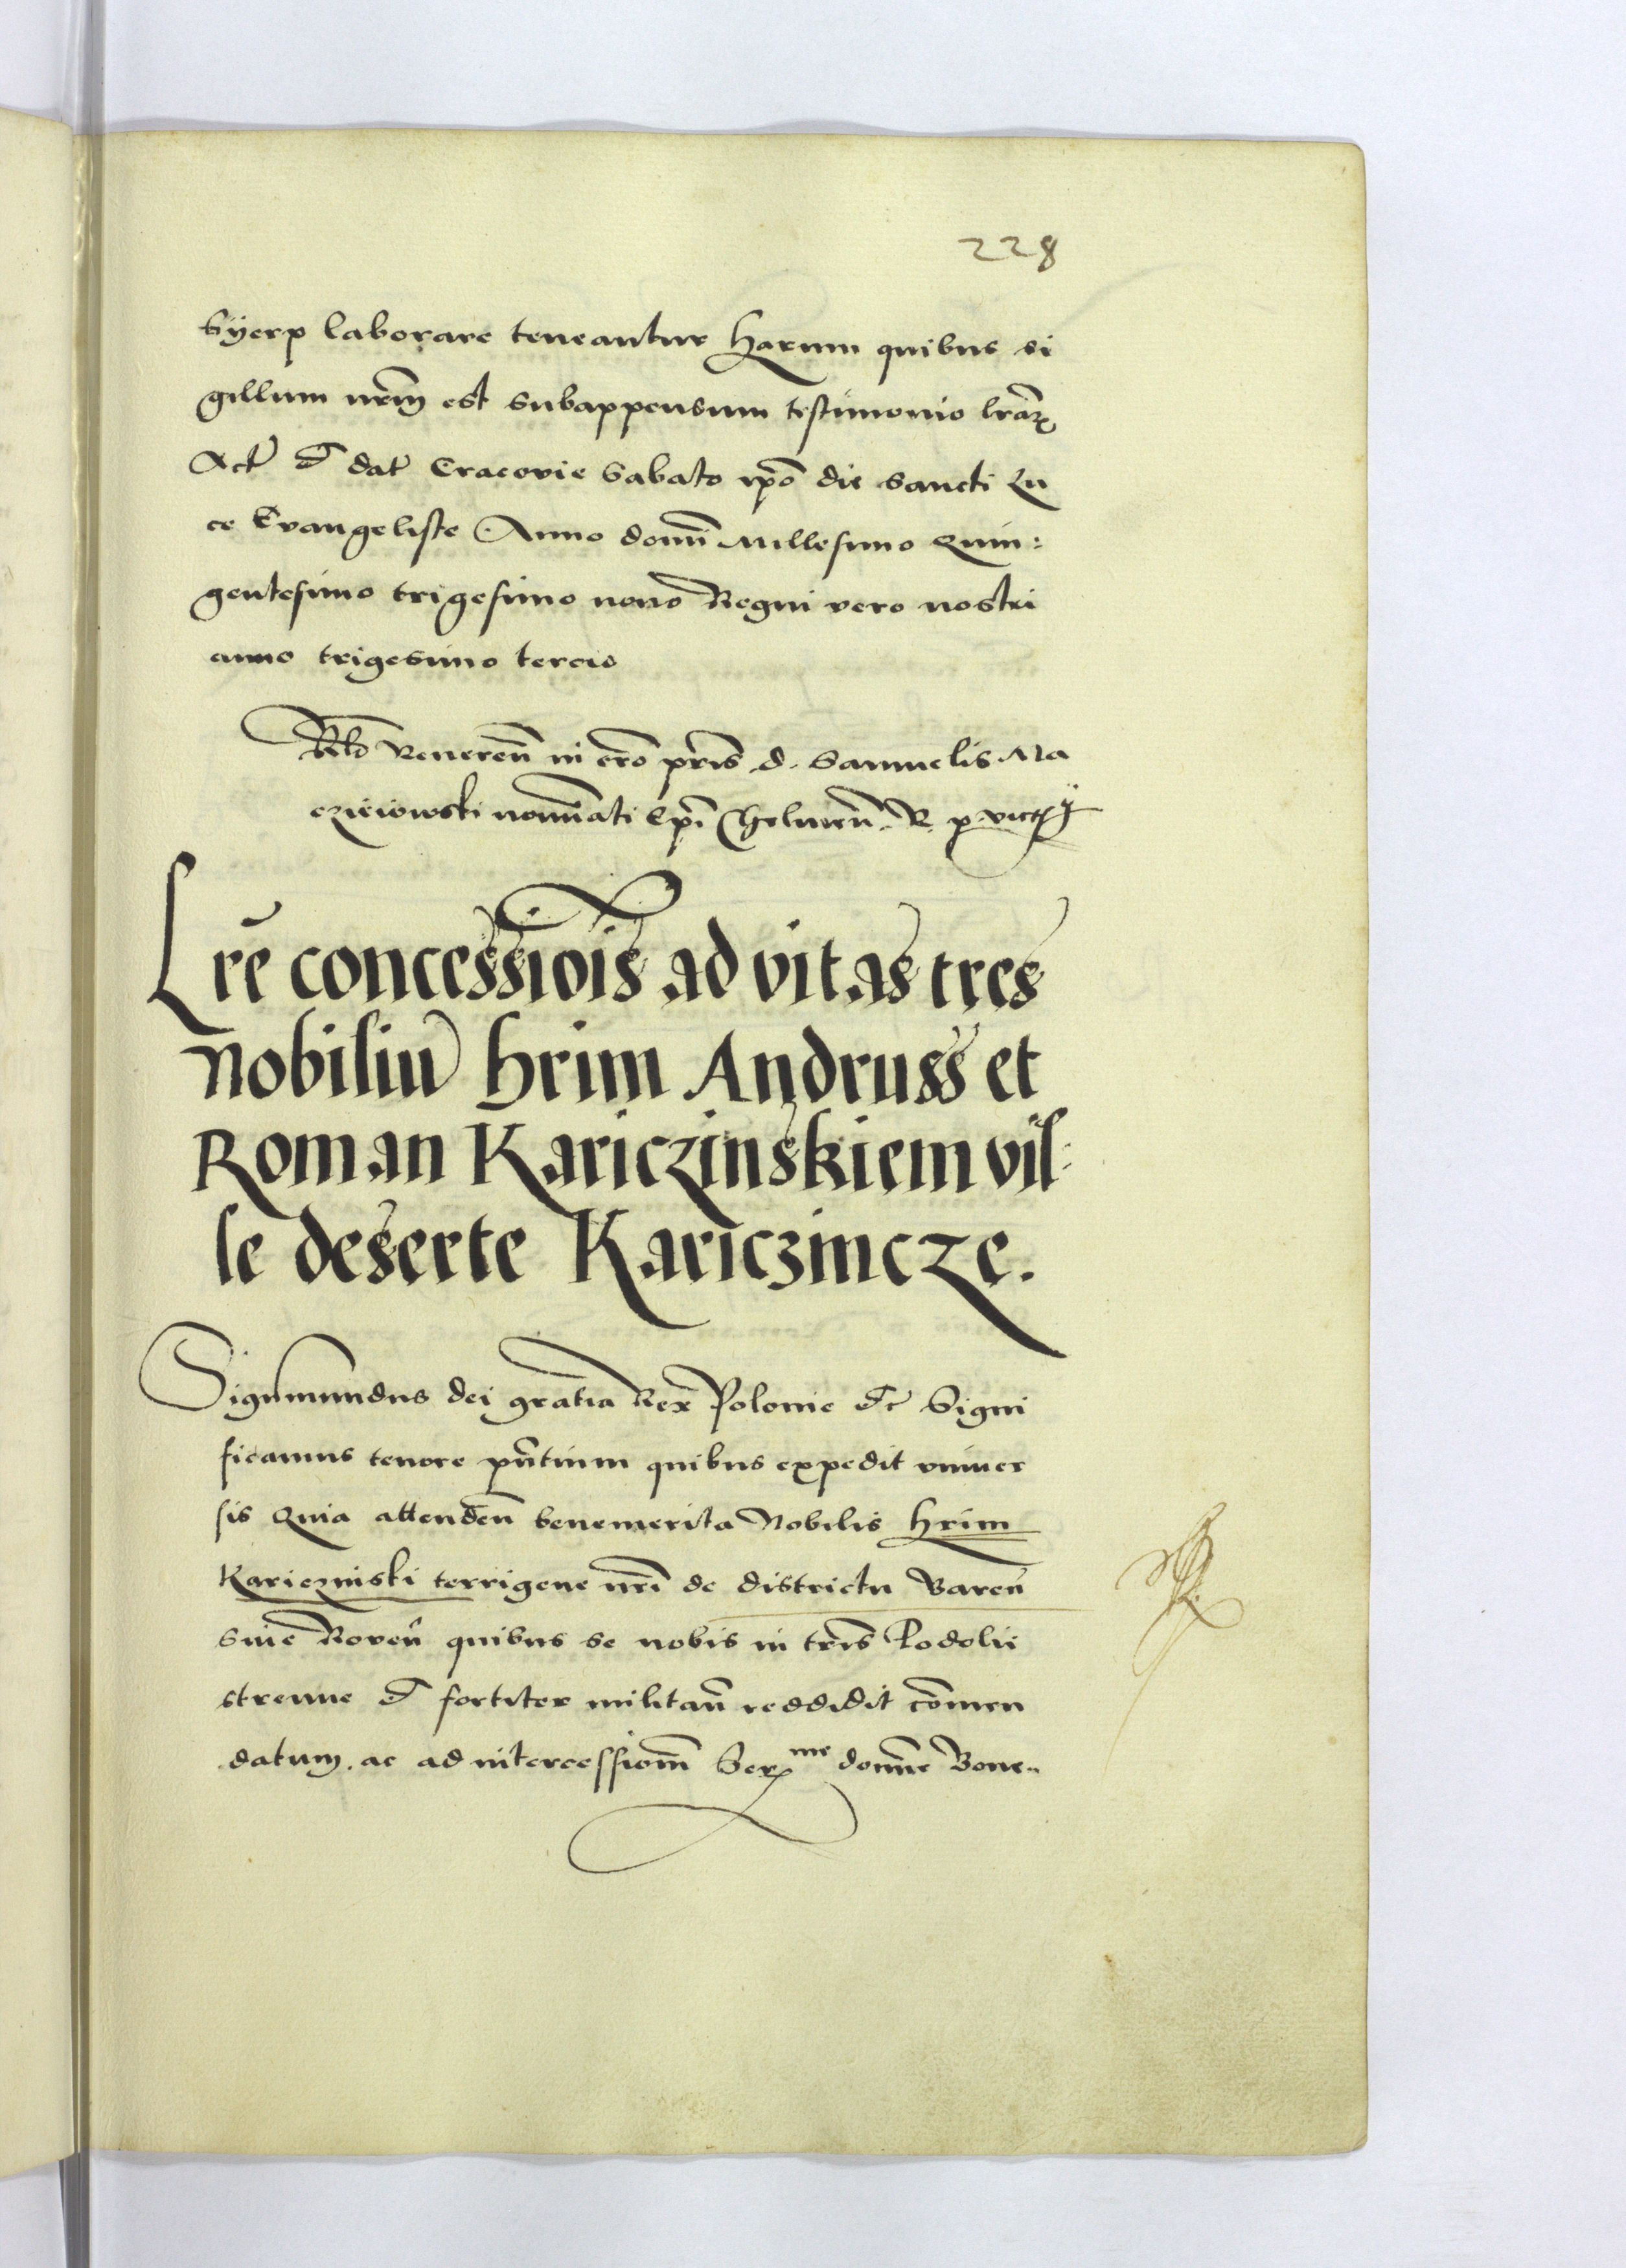 228
Syerp laborare teneantur Harum quibus si
gillum nrm̃ est subappensum testimonio lrãꝝ
Act̃ et dat̃ Cracovie Sabato ip̃o die sancti Lu
ce Evangeliste Anno domĩ Millesimo Quin:
gentesimo trigesimo nono Regni vero nostri
anno trigesimo tercio
Rel̃o Veneren̄ in cr̃o pr̃is d. Samuelis Ma
czieiowski nomĩati Ep̃i Chelmen̄. R. p.
Lrē concessiois̃ ad vitas tres
nobiliu̅ Hrim Andruss et
Roman Kariczinskiem vil:
le deserte Kariczincze.
Sigismundus dei gratia Rex Polonie etc̃ Signi
ficamus tenore pñtium quibus expedit univer
sis Quia attenden̄ benemerita Nobilis Hrim
Kariczinski terrigene nrĩ de districtu Baren̄
sive Roven̄ quibus se nobis in tr̃is Podolii
strenue et fortiter militan̄ reddidit com̃en
datum. ac ad intercessiom̃ Serᵐᵉ domñe Bone..